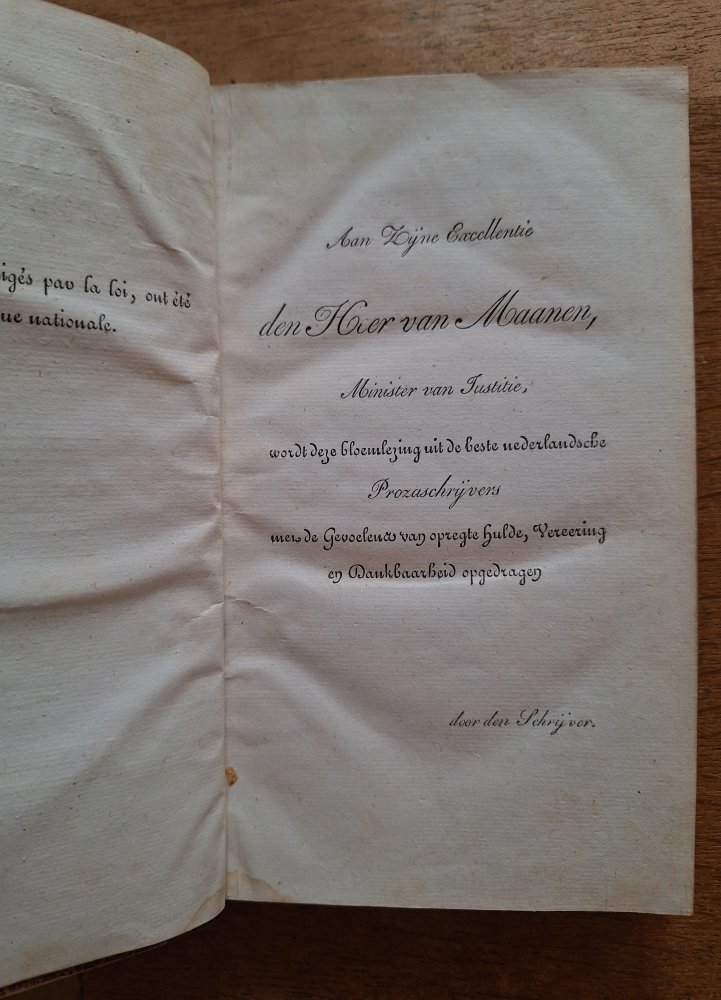 igés par la loi, ont été
ue nationale.
Aan Zijne Excellentie
den Heer van Maanen,
Minister van Justitie,
wordt deze bloemlezing uit de beste nederlandsche
Prozaschrijvers
met de Gevoelens van opregte hulde, Vereering
en Dankbaarheid opgedragen
door den Schrijver.